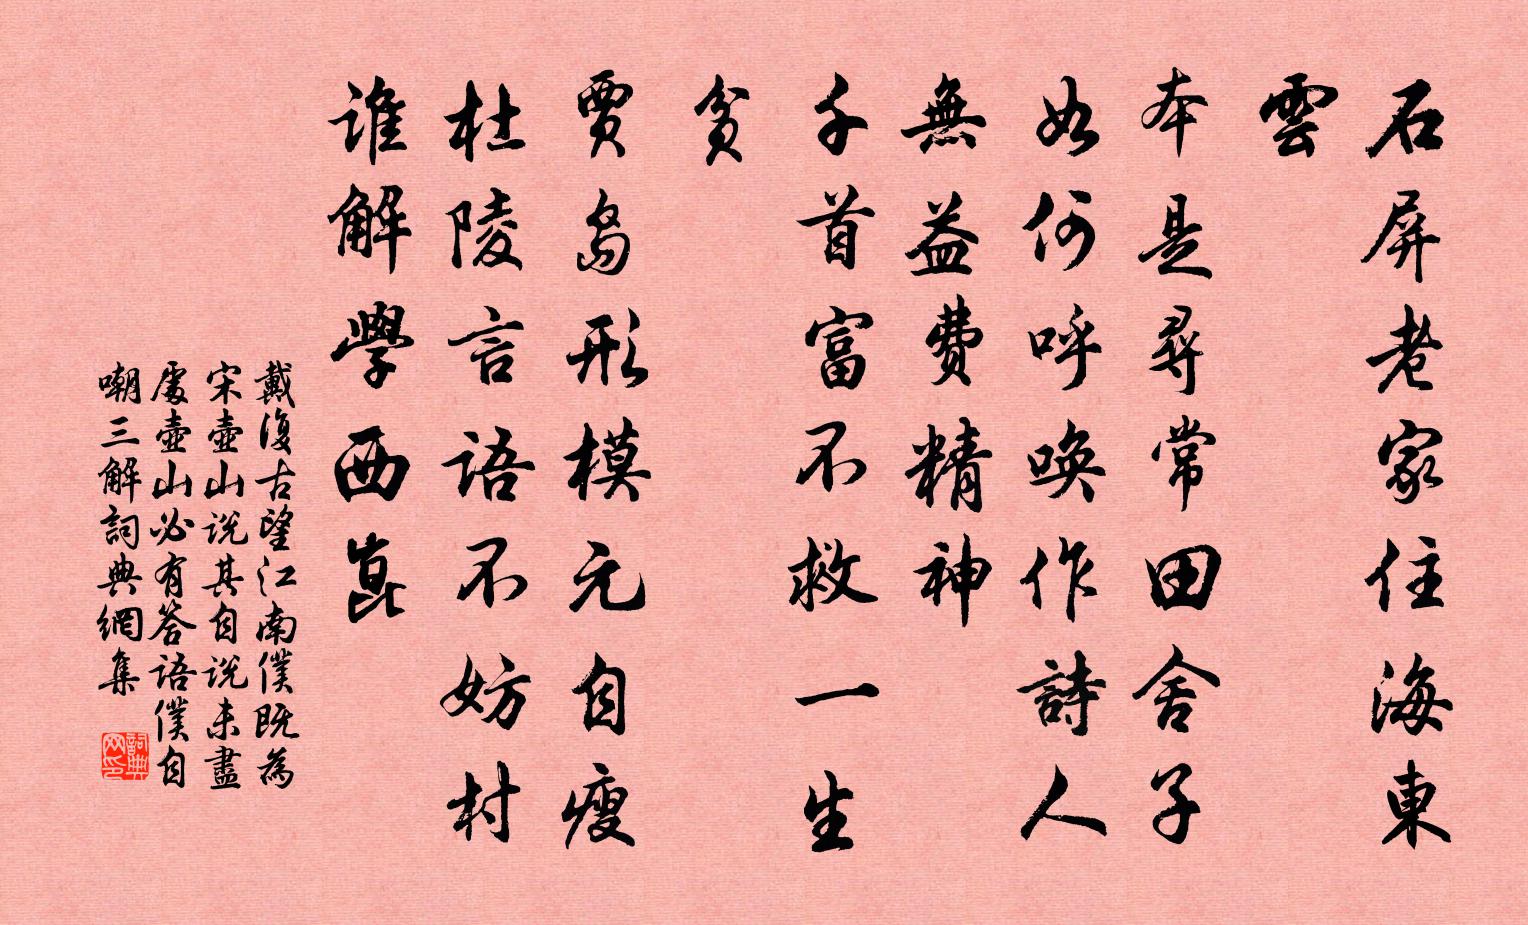 石屏老家住海東
雲
本是尋常田舍子
如何呼喚作詩人
無益費精神
千首富不救一生
貧
賈島形模元自瘦
杜陵言語不妨村
誰解學西崑
戴復古望江南僕既為
宋壺山說其自說未盡
處壺山必有答語僕自
嘲三解詞典網集
詞典
网印